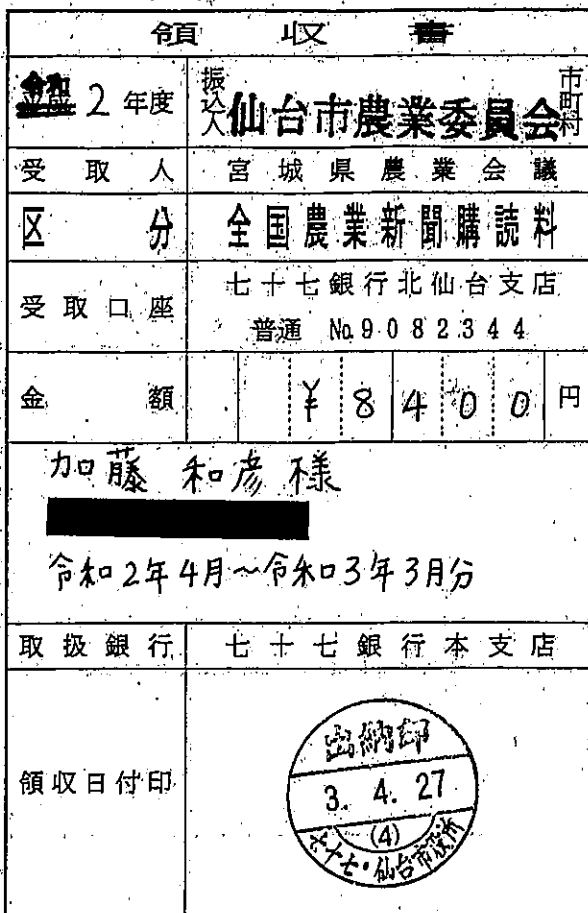 領収書
令和 2 年度 振込人 仙台市農業委員会 市町村
受取人 宮城県農業会議
区分 全国農業新聞購読料
受取口座 七十七銀行北仙台支店
普通 No.9082344
金額 ¥8400円
加藤 和彦 様
令和2年4月～令和3年3月分
取扱銀行 七十七銀行本支店
領収日付印
出納部
3. 4. 27
(4)
七十七・仙台市役所